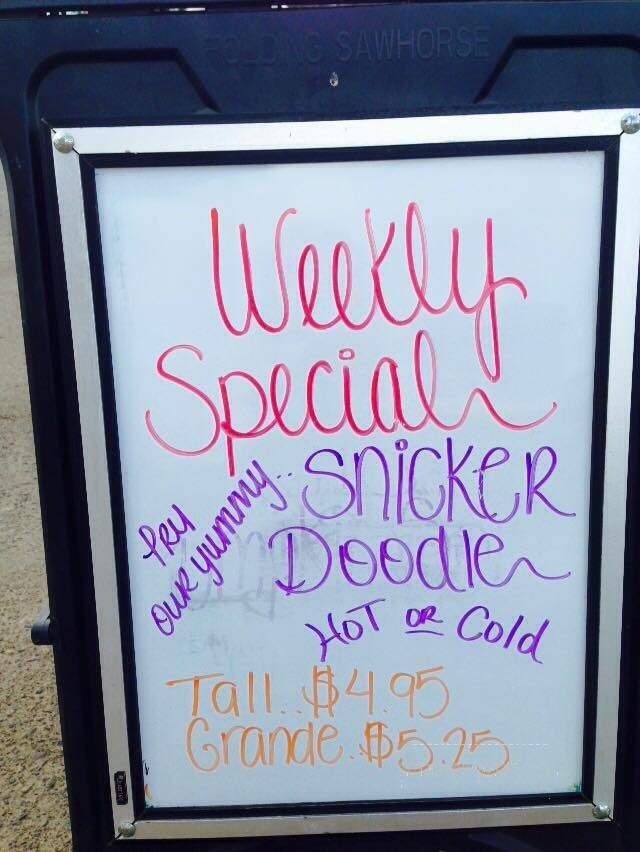 FOLDING SAWHORSE
Weekly
Special
try
our yummy..
SNicKeR
Doodle
HOT OR Cold
Tall..$4.95
Grande.$5.25